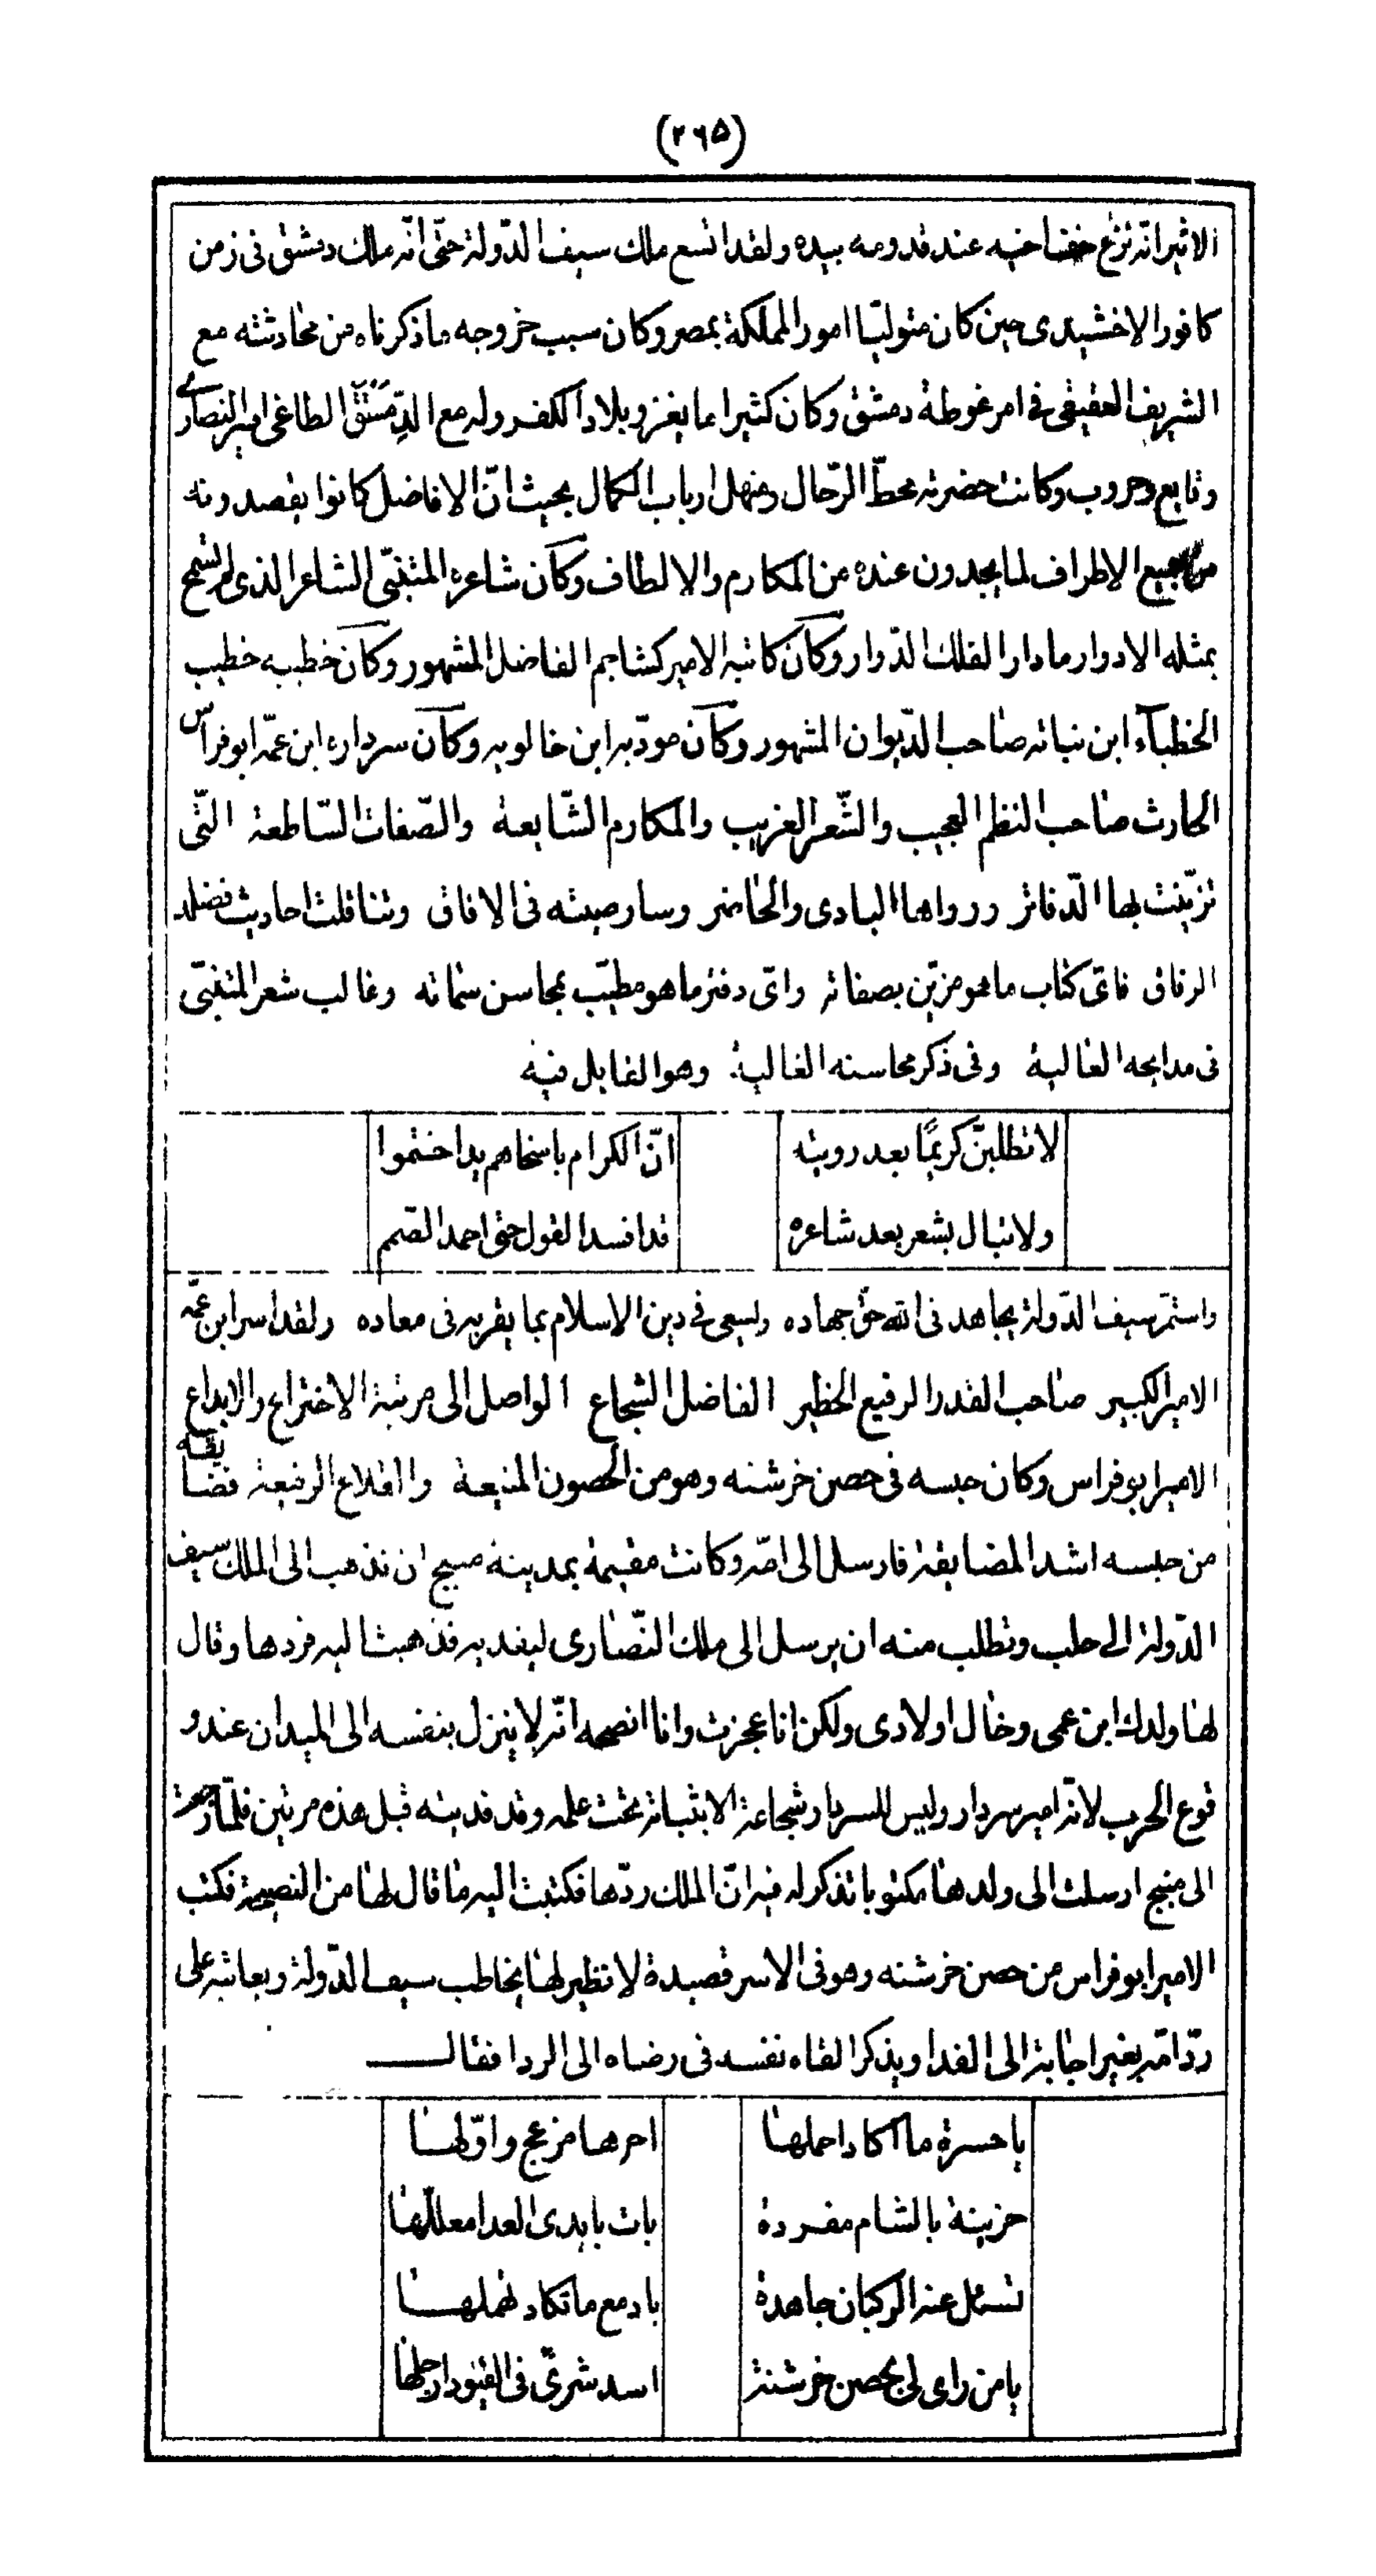 (٢۶۵)
الاثيرانّه نزع خفّا خيه عند قدومه بيده ولقد اتسع ملك سيف الدّولة حتّى انّه ملك دمشق فى زمن
كافور الاخشيدى حين كان متوليّا امور المملكة بمصر وكان سبب خروجه ما ذكرناه من محادثته مع
الشريف العقيقى فى امر غوطة دمشق وكان كثيرا ما يغزو بلاد الكفر وله مع الدّمستق الطاغى امير النصارى
وقايع وحروب وكانت حضرته محطّ الرّحال ومنهل ارباب الكمال بحيث انّ الافاضل كانوا يقصدونه
من جميع الاطراف لما يجدون عنده من المكارم والالطاف وكان شاعره المتنبّى الشاعر الذى لم تسمح
بمثله الادوار ما دار الفلك الدّوار وكان كاتبه الامير كشاجم الفاضل المشهور وكان خطيبه خطيب
الخطبآء ابن نباته صاحب الدّيوان المشهور وكان مودّبه ابن خالويه وكان سرداره ابن عمّه ابو فراس
الحارث صاحب النظم العجيب والشّعر الغريب والمكارم الشّايعة والصّفات السّاطعة الّتى
تزيّنت بها الدّفاتر ورواها البادى والحاضر وسار صيته فى الافاق وتناقلت احاديث فضله
الرفاق فاىّ كتاب ما هو مزيّن بصفاته واىّ دفتر ما هو مطيّب بمحاسن سماته وغالب شعر المتنبّى
فى مدايحه الغالية وفى ذكر محاسنه الغالية وهو القايل فيه
لا تطلبنّ كريمًا بعد رويته انّ الكرام باسخاهم يدا ختموا
ولا تبال بشعر بعد شاعره قد افسد القول حتى احمد الصّمم
واستمرّ سيف الدّولة يجاهد فى الله حقّ جهاده ويسعى فى دين الاسلام بما يقربه فى معاده ولقد اسر ابن عمّه
الامير الكبير صاحب القدر الرفيع الخطير الفاضل الشجاع الواصل الى مرتبة الاختراع والابداع
الامير ابو فراس وكان حبسه فى حصن خرشنه وهو من الحصون المنيعة والقلاع الرفيعة فضايقه
من حبسه اشد المضايقة فارسل الى امّه وكانت مقيمة بمدينة منبج ان تذهب الى الملك سيف
الدّولة الى حلب وتطلب منه ان يرسل الى ملك النّصارى ليفديه فذهبت اليه فردها وقال
لها ولدك ابن عمى وخال اولادى ولكن انا عجزت وانا انصحه انّه لا ينزل بنفسه الى الميدان عند و
قوع الحرب لانّه امير سردار وليس للسردار شجاعة الا بثباته تحت علمه وقد فديته قبل هذه مرتين فلمّا رجعت
الى منبج ارسلت الى ولدها مكتوبا تذكر له فيه انّ الملك ردّها فكتبت اليه ما قال لها من النصيحة فكتب
الامير ابو فراس من حصن خرشنه وهو فى الاسر قصيدة لا نظير لها يخاطب سيف الدّولة ويعاتبه على
ردّ امّه بغير اجابة الى الفدا ويذكر القاه نفسه فى رضاه الى الردا فقال
يا حسرة ما اكاد احملها اخرها مزعج واوّلها
حزينة بالشام مفردة بات بايدى العدا معلّلها
تسئل عنه الركبان جاهدة بادمع ما تكاد تمهلها
يا من راى لى بحصن خرشنة اسد شرىّ فى القيود ارجلها